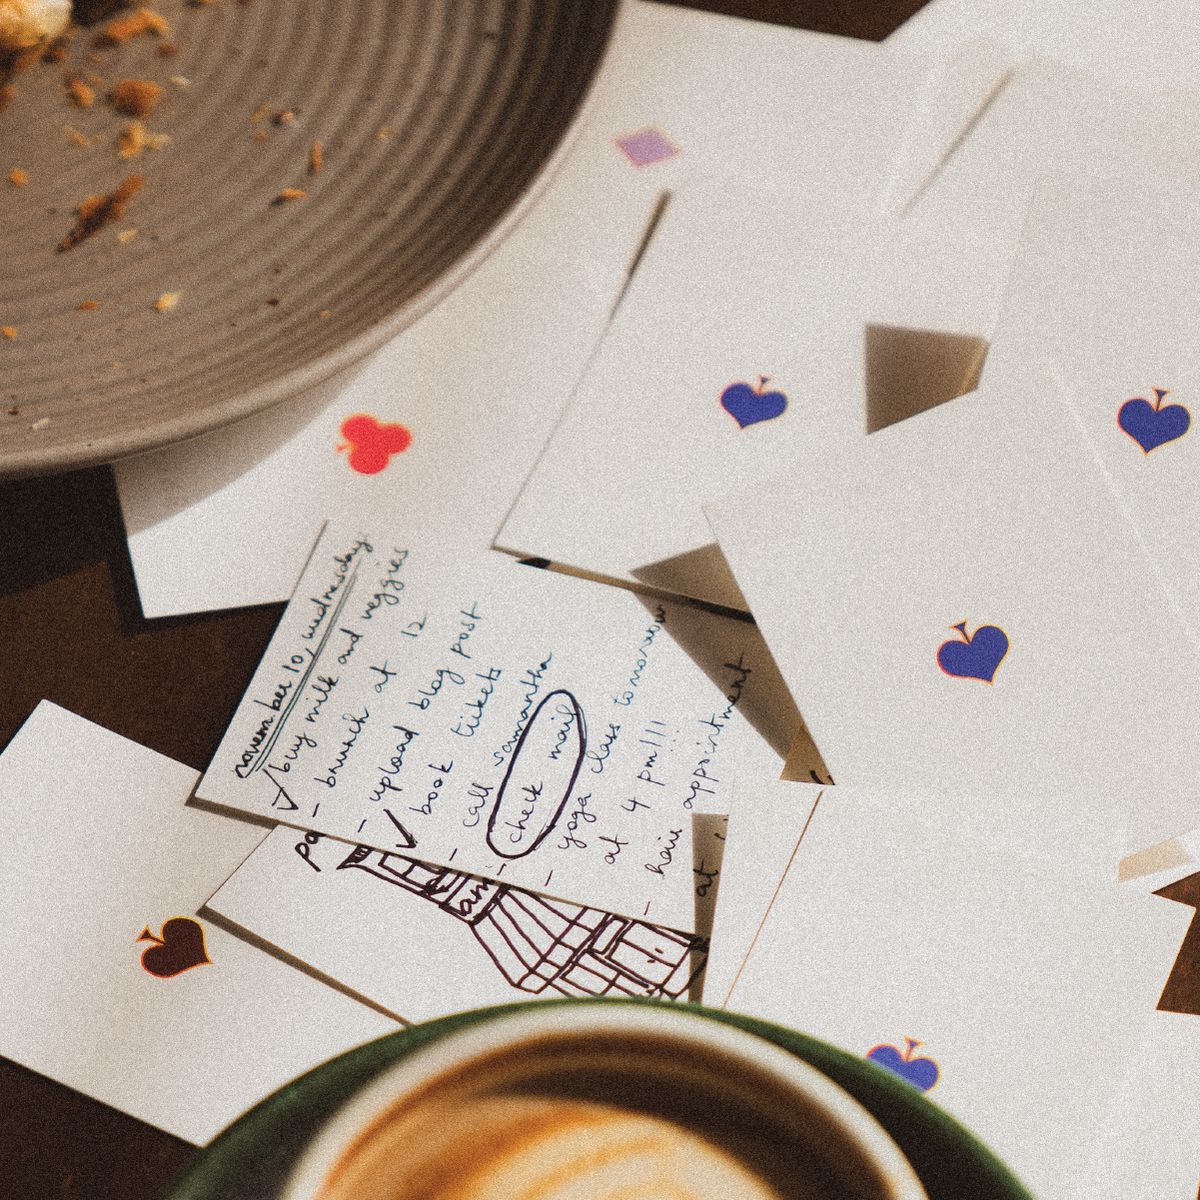 november 10, wednesday
✓ buy milk and veggies
- brunch at 12
- upload blog post
✓ book tickets
- call samantha
- check mail
- yoga class tomorrow
at 4 pm!!!
- hair appointment
at
pa